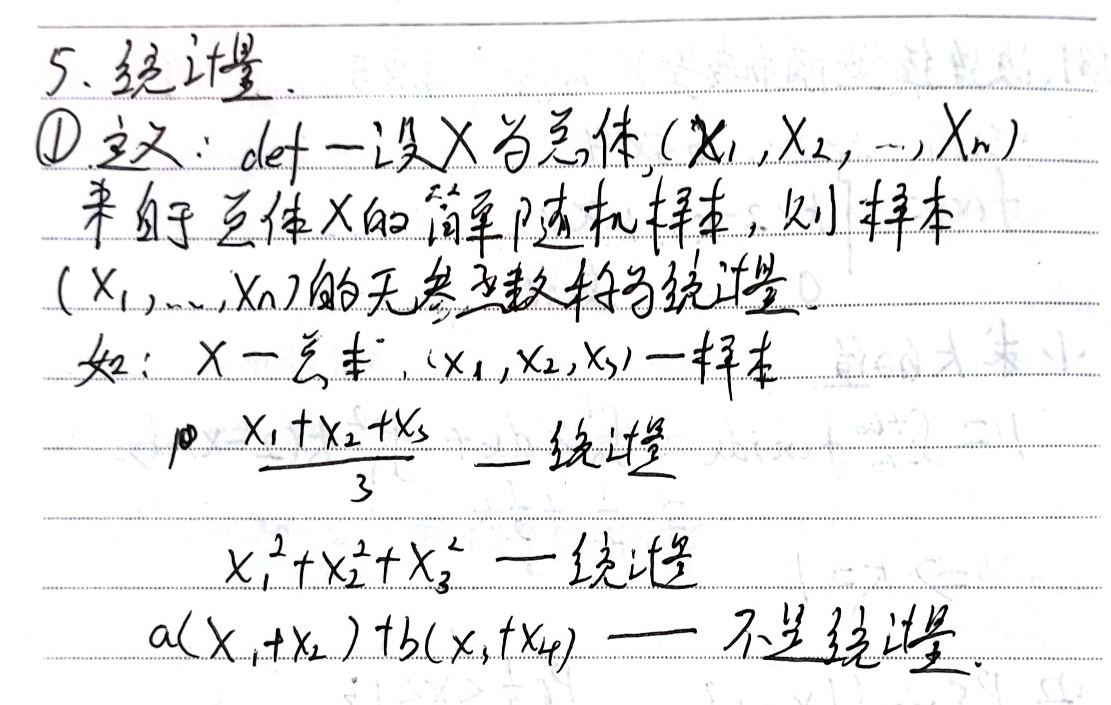 5. 统计量.
① 定义: def — 设X为总体, (X₁, X₂, …, Xₙ)
来自于总体X的简单随机样本, 则样本
(X₁, …, Xₙ)的无参函数称为统计量.
如: X — 总本, (X₁, X₂, X₃) — 样本
(X₁+X₂+X₃)/3 — 统计量
X₁²+X₂²+X₃² — 统计量
a(X₁+X₂)+b(X₃+X₄) — 不是统计量.